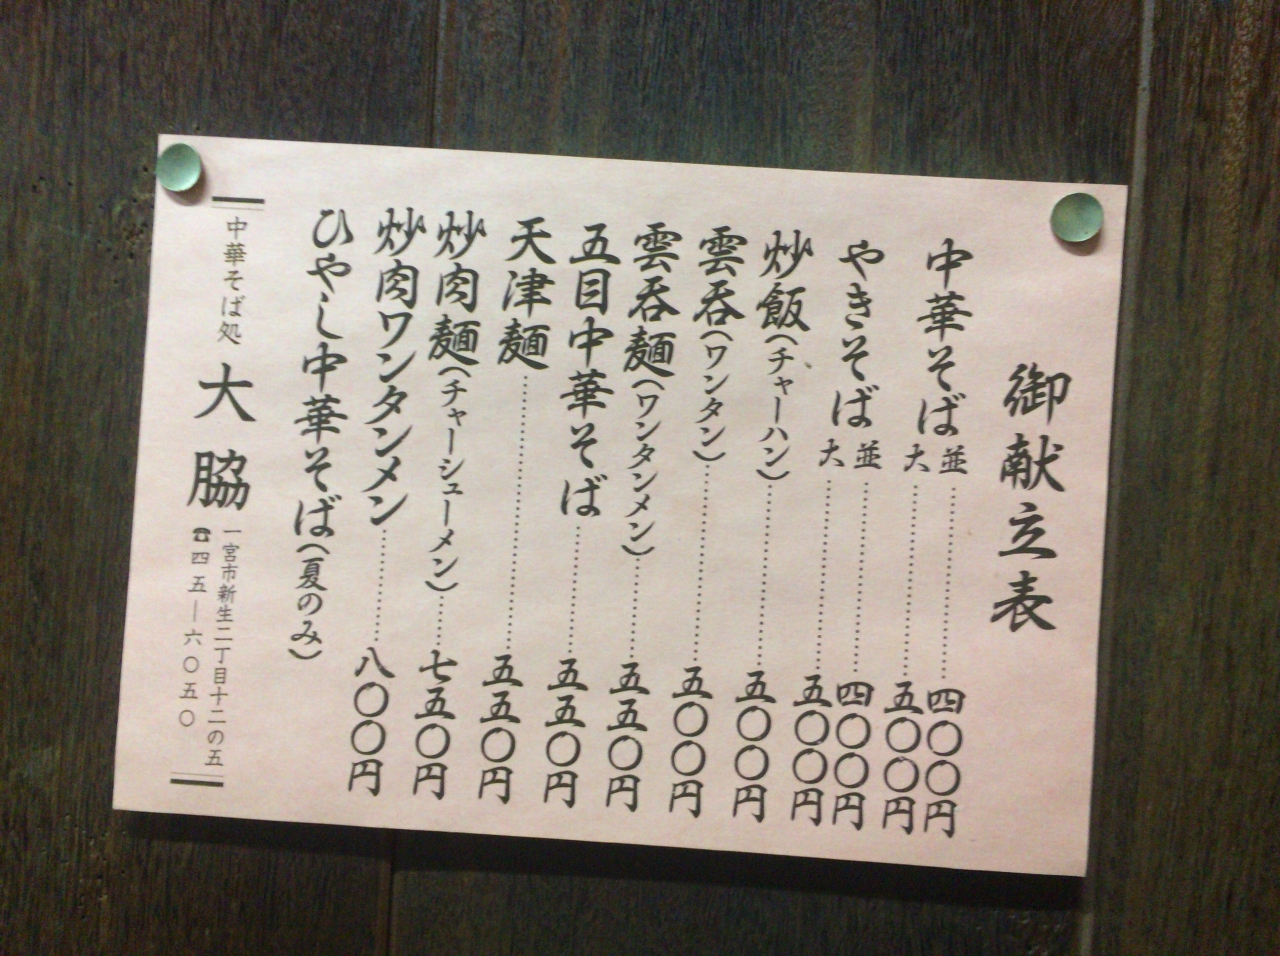 御献立表
中華そば 並 四〇〇円
大 五〇〇円
やきそば 並 四〇〇円
大 五〇〇円
炒飯(チャーハン) 五〇〇円
雲呑(ワンタン) 五〇〇円
雲呑麺(ワンタンメン) 五五〇円
五目中華そば 五五〇円
天津麺 五五〇円
炒肉麺(チャーシューメン) 七五〇円
炒肉ワンタンメン 八〇〇円
ひやし中華そば(夏のみ)
中華そば処 大脇
一宮市新生二丁目十二の五
☎四五―六〇五〇